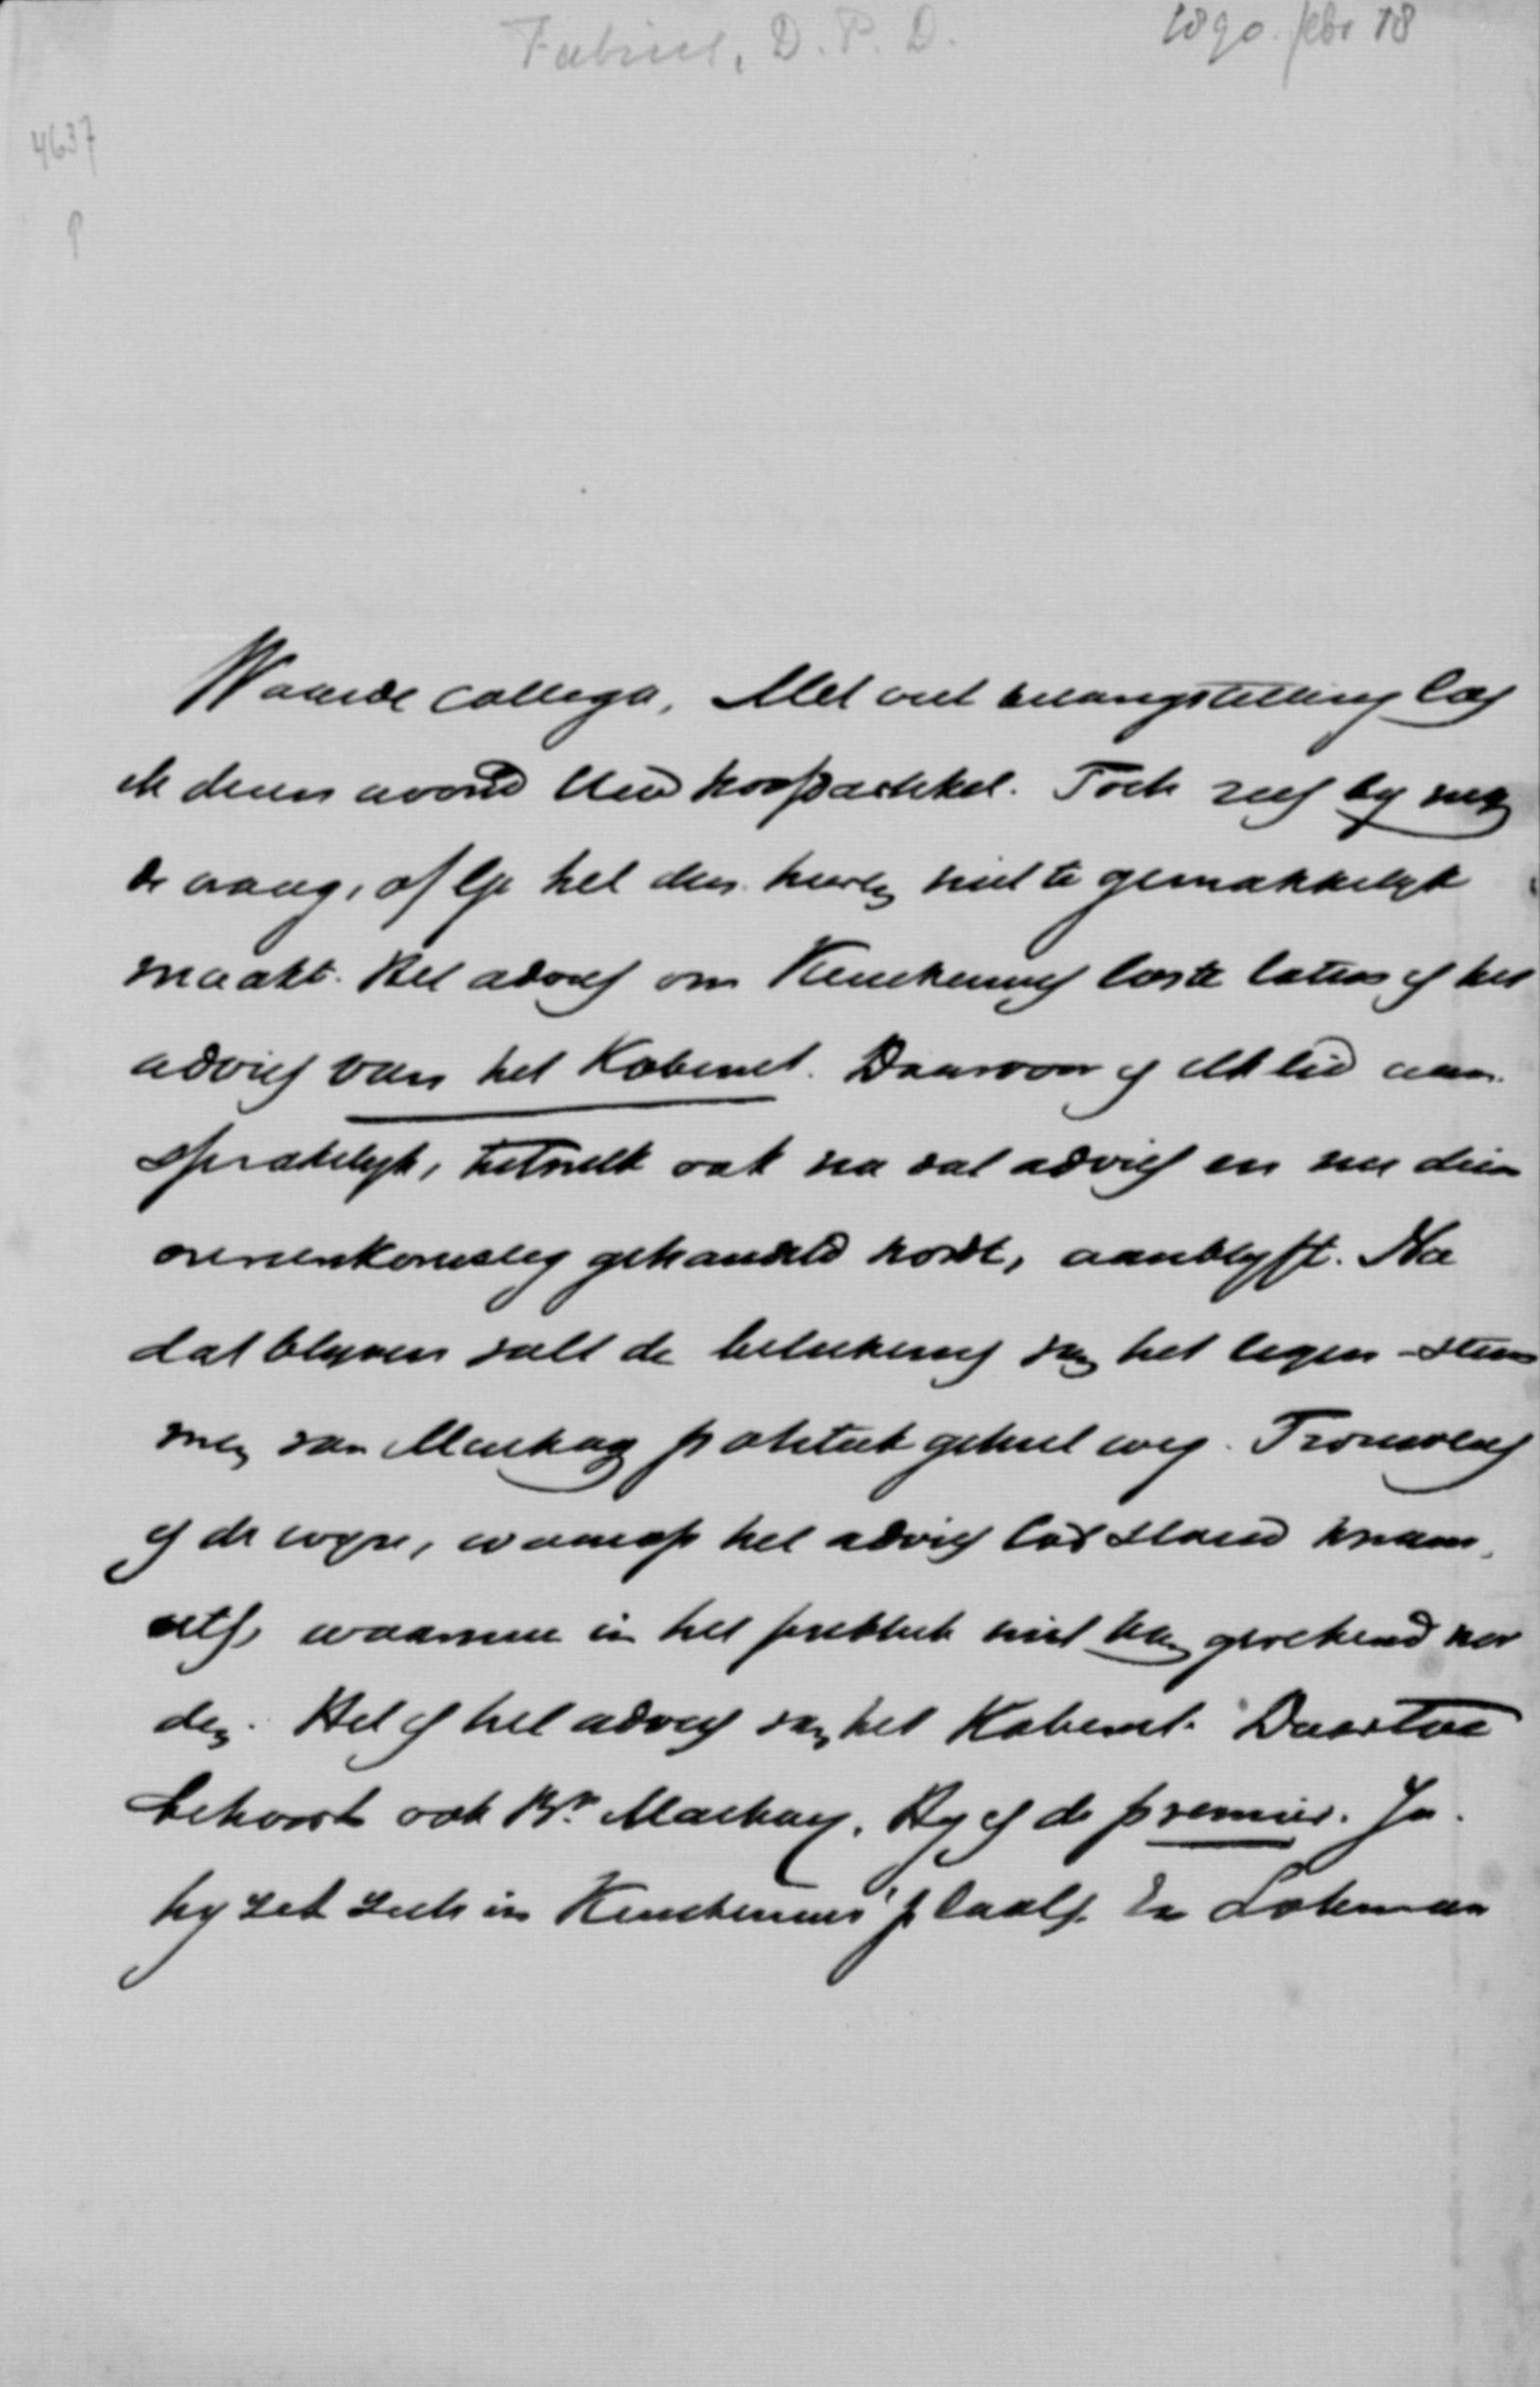 Fabius, D. P. D.
1890. febr 18
4637
Waarde Collega, Met veel belangstelling las
ik dezen avond Uw hoofdartikel. Toch rees bij mij
de vraag, of Gij het den heeren niet te gemakkelijk
maakt. Het advies om Keuchenius los te laten is het
advies van het Kabinet. Daarvoor is elk lid aan-
sprakelijk, hetwelk ook na dat advies en nu dien
overeenkomstig gehandeld wordt, aanblijft. Na
dat blijven valt de beteekenis van het tegen-stem
men van Mackay politiek geheel weg.
is de wijze, waarop het advies tot stand kwam,
iets, waarmee in het publiek niet kan gerekend wor
den. Het is het advies van het Kabinet. Daartoe
behoort ook Br. Mackay. Hij is de premier. Ja.
hij zet zich in Keuchenius' plaats. En Lohman